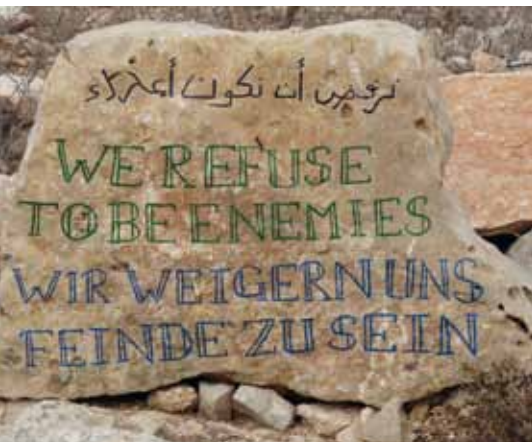 نرفض أن نكون أعداء
WE REFUSE
TO BE ENEMIES
WIR WEIGERN UNS
FEINDE ZU SEIN